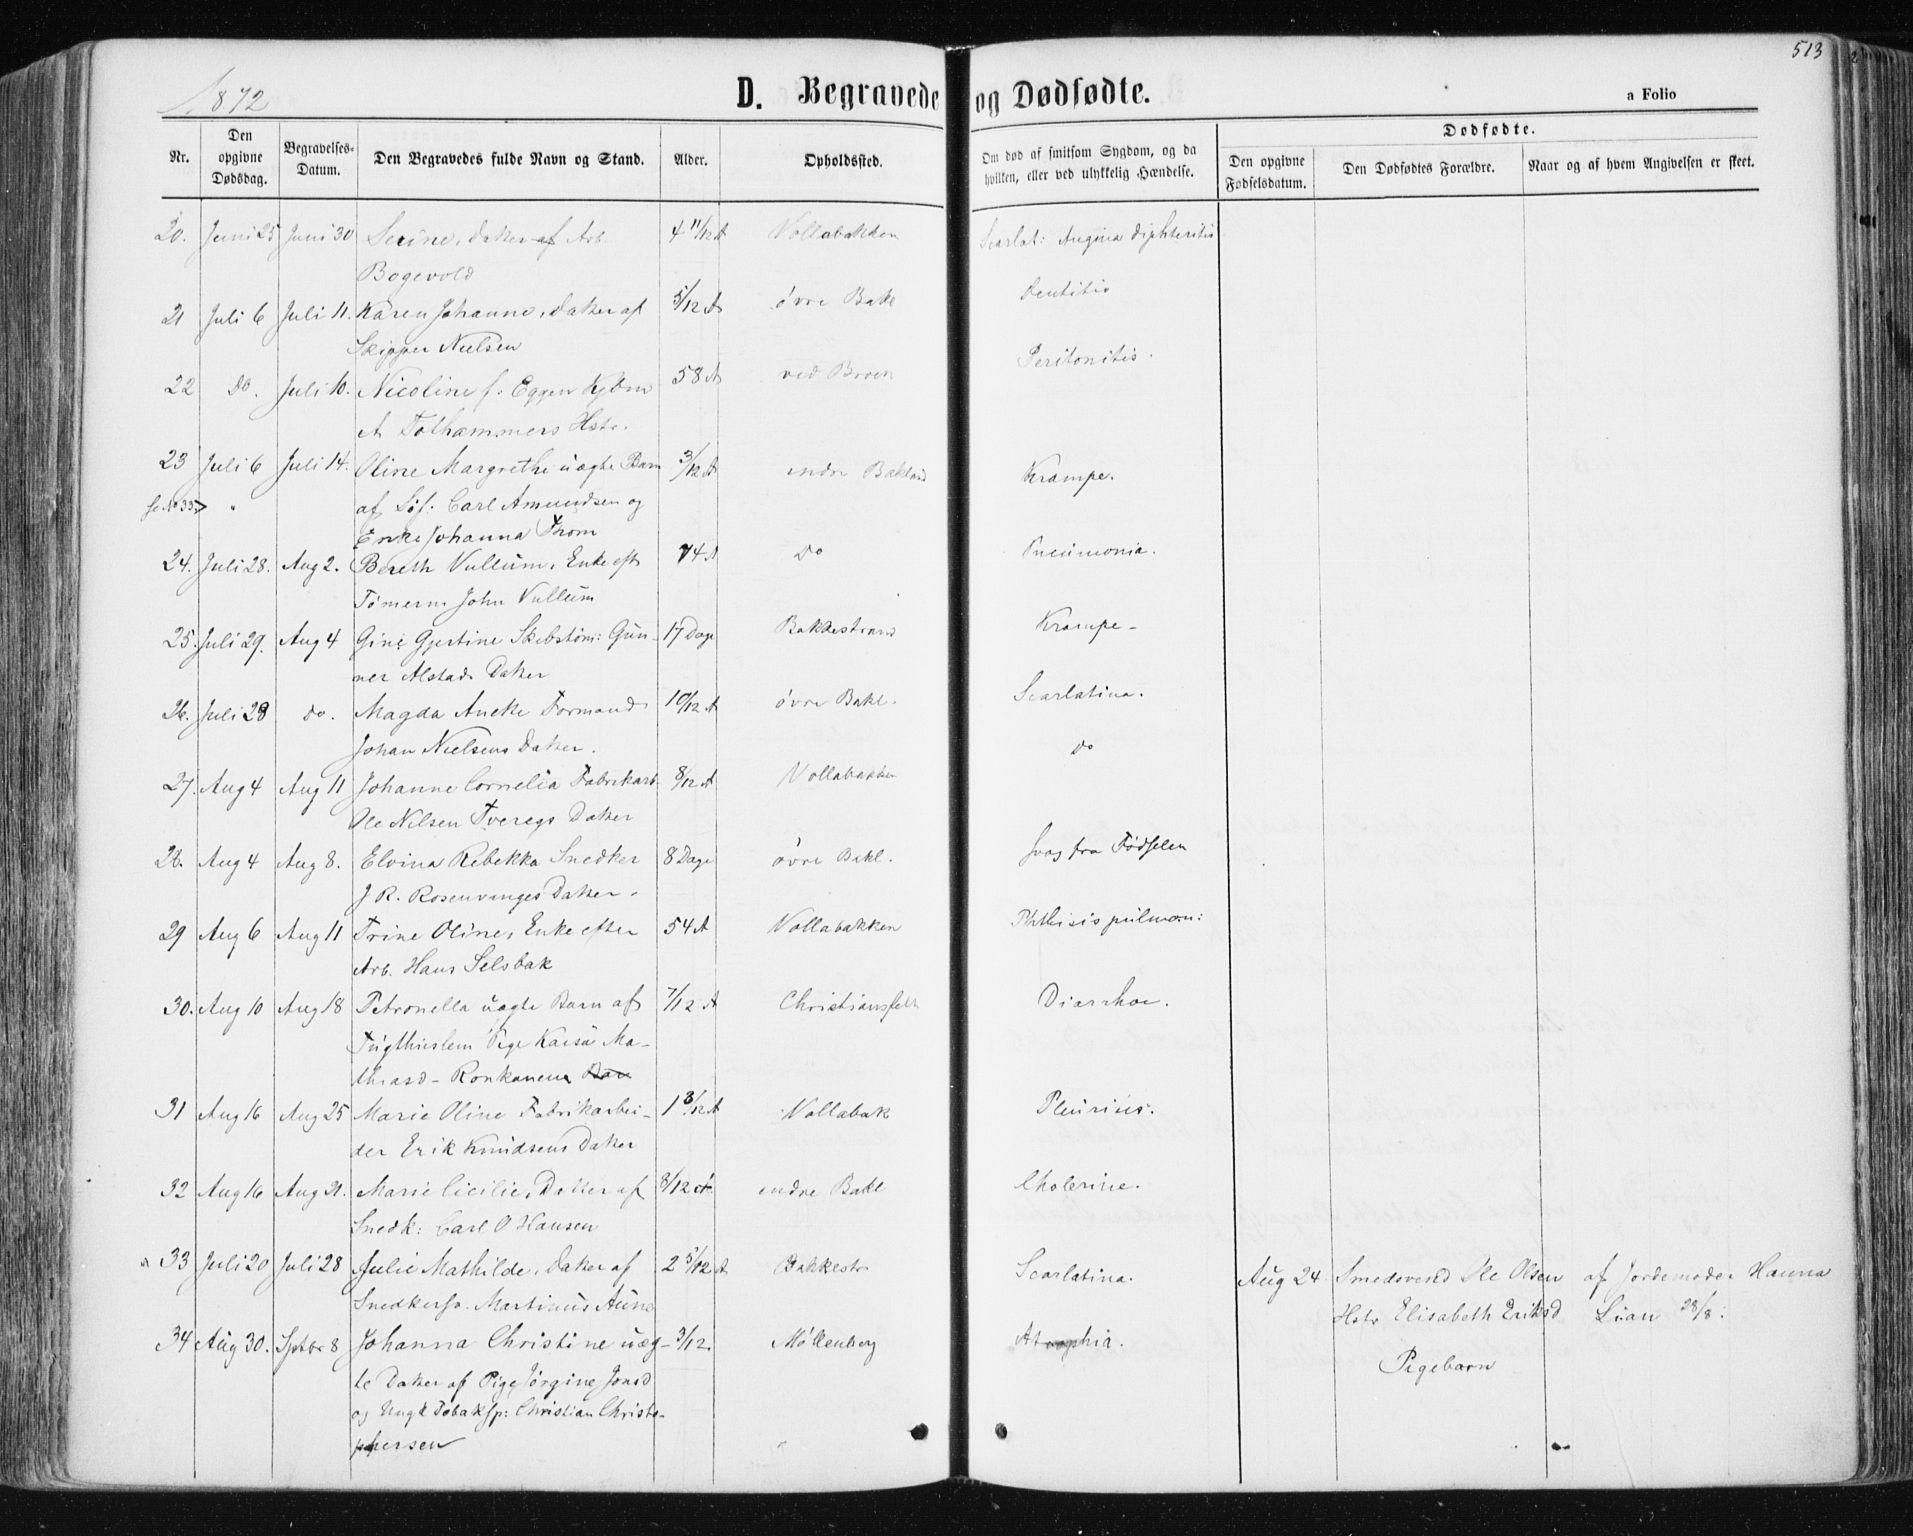 513
1872
D. Begravede og Dødfødte.
a Folio
Nr.
Den opgivne Dødsdag.
Begravelses-Datum.
Den Begravedes fulde Navn og Stand.
Alder.
Opholdssted.
Om død af smitsom Sygdom, og da hvilken, eller ved ulykkelig Hændelse.
Dødfødte.
Den opgivne Fødselsdatum.
Den Dødfødtes Forældre.
Naar og af hvem Angivelsen er skeet.
20. Juni 25 Juni 30 Serine, Datter af Arb. 4 11/12 A Vollabakken Scarlat: Angina diphteritis
Bogevold
21 Juli 6 Juli 11. Karen Johanne, Datter af 5/12 A øvre Bakl Dentitio
Skipper Nielsen
22 Do. Juli 10. Nicoline f: Eggen Kjøbm 58 A ved Broen Peritonitis.
A Folhammers Hstr.
23 Juli 6 Juli 14. Oline Margrethe uægte Barn 3/12 A nedre Bakland Krampe.
se No 35 " af Løs: Carl Amundsen og
Enke Johanna From
24. Juli 28. Aug 2. Bereth Vullum, Enke eft 74 A Do Pneumonia.
Tømerm John Vullum
25. Juli 29. Aug 4 Gine Gjertine Skibstøm: Gun- 17 Dage Bakkestrand Krampe-
ner Alstads Datter
26. Juli 28 do. Magda Aneke Formand 10/12 A øvre Bakl. Scarlatina.
Johan Nielsens Datter.
27. Aug 4 Aug 11 Johanne Cornelia Fabrikarb. 8/12 A Vollabakken do
Ole Nilsen Tveregs Datter
28. Aug 4 Aug 8. Elvina Rebekka Snedker 8 Dage øvre Bakl. svag fra Fødselen
J R. Rosenvinges Datter.
29 Aug 6 Aug 11 Trine Oline, Enke efter 54 A Vollabakken Phthisis pulmon:
Arb. Hans Selsbak
30. Aug 10 Aug 18 Petronella uægte Barn af 7/12 A Christiansfeldt Diarrhoe.
Tugthuslem Pige Kaisa Ma-
thiasd- Ronkanem
31 Aug 16 Aug 25 Marie Oline Fabrikarbei- 1 8/12 A Vollabak Pleurius.
der Erik Knudsens Datter
32 Aug 16 Aug 21. Marie Cicilie, Datter af 8/12 A nedre Bakl Cholerine.
Snedk: Carl O Hansen
33 Juli 20 Juli 28 Julie Mathilde, Datter af 2 5/12 A Bakkestr Scarlatina. Aug 24 Smedsvend Ole Olsen af Jordemoder Hanna
Snedkersv. Martinus Aune Hstr Elisabeth Eriksd Lian 28/8.
34 Aug 30. Sptbr 8 Johanna Christine uæg- 3/12. Møllenberg Atrophia. Pigebarn
te Datter af Pige Jørgine Jonsd
og Ungk Tobaksp: Christian Christo-
phersen